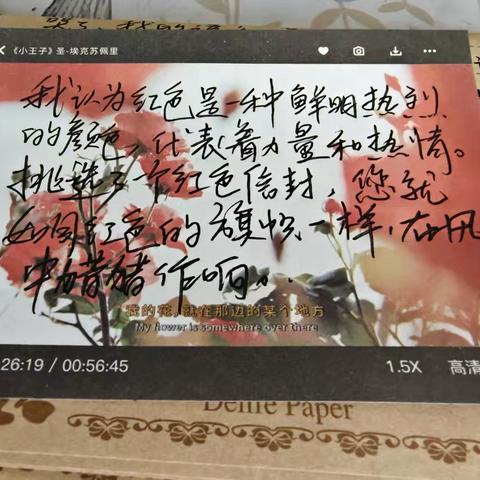 《小王子》圣-埃克苏佩里
我认为红色是一种鲜明热烈
的颜色,代表着力量和热情。
挑选了一个红色信封,您就
如同红色的旗帜一样,在风
中猎猎作响。
我的花,就在那边的某个地方
My flower is somewhere over there
26:19 / 00:56:45
1.5X
高清
Paper